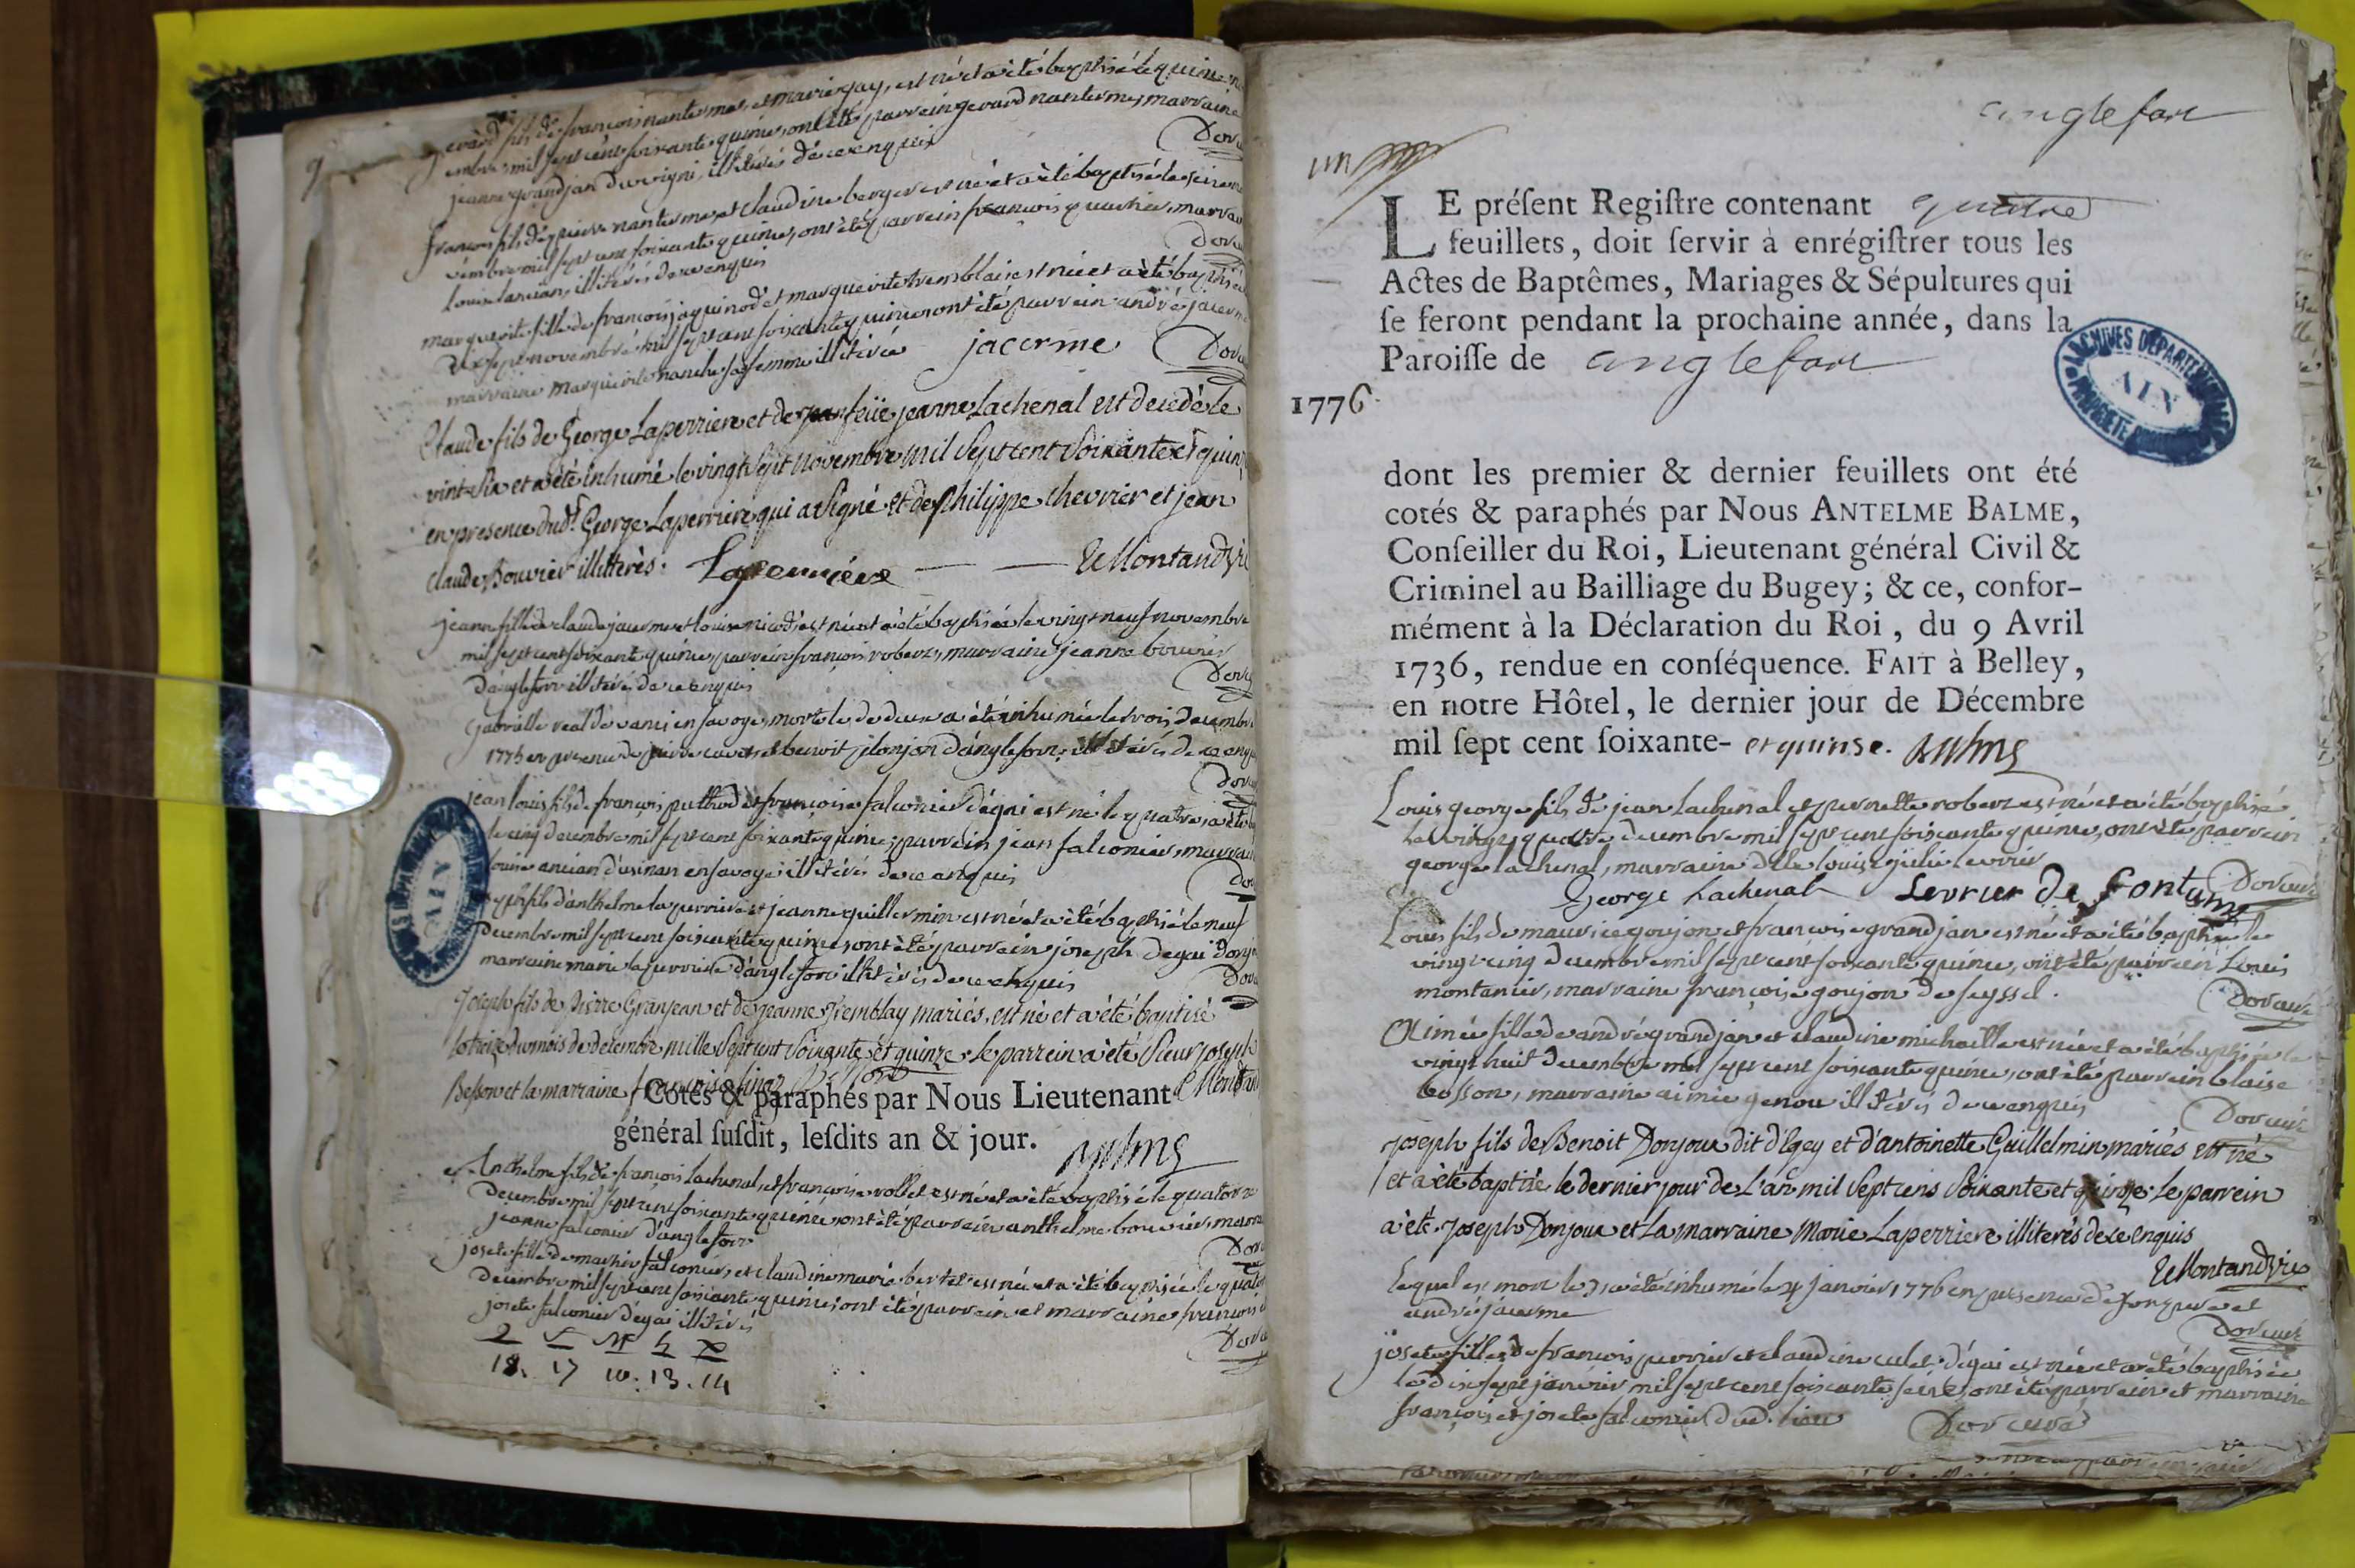 9
gerard fils de françois nantermes, et marie gay, est né et a été baptisé le quinze
embre mil sept cent soixante quinze, ont été parrein gerard nantermes, marraine
jeanne grandjan illiterés de ce enquis
Dorc
françois fils de pierre nantermes, et claudine berger est né et a été baptisé le seize
embre mil sept cent soixante quinze, ont été parrein françois marra
louise illiterés de ce enquis
Dorc
marguerite fille de françois jaquinod et marguerite tremblai est née et a été baptisée
dix sept novembre mil sept cent soixante quinze ont été parrein andré jacerme
marraine marguerite sagefemme illiterée jacerme
Dorc
Claude fils de George Laperriere et de feüe jeanne Lachenal est decedé le
vint Six et a été Inhumé le vingt Sept Novembre mil Sept cent Soixante et quin
en presence dudt George Laperriere qui a Signé et de philippe chevrier et jean
Claude Bouvier illitterés. Laperriere
Montand vic
jeanne fille de claude jacerme et louise nicod est née et a été baptisée le vingt neuf novembre
mil sept cent soixante quinze, parrein françois robert, marraine jeanne
d'anglefort illiterés de ce enquis
Dorc
gabrielle real de en savoye, morte le deux a été inhumée le trois decembre
1775 en presence de pierre et benoit d'anglefort; illiterés de ce enqu
Dorc
jean louis fils de françois puthod et françoise falconier d'égai est né le quatre, a été
le cinq decembre mil sept cent soixante quinze, parrein jean falconier, marrai
louise ancian en savoye illiterés de ce enquis
Dor
joseph fils d'anthelme laperriere et jeanne guillermin est né et a été baptisé le neuf
decembre mil sept cent soixante quinze ont été parrein joseph
marraine marie laperriere d'anglefort illiterés de ce enquis
Dorc
Joseph fils de Pierre Granjean et de jeanne Tremblay mariés, est né et a été baptisé
le treize du mois de decembre mille Sept cent Soixante et quinze. le parrein a été Sieur joseph
Besson et la marraine françoise
Montan
Cotés & paraphés par Nous Lieutenant
général ſuſdit, leſdits an & jour. Balme
Anthelme fils de françois lachenal, et françoise rollet est né et a été baptisé le quatorze
decembre mil sept cent soixante quinze ont été parrein anthelme bouvier, marra
jeanne falconier d'anglefort
Dorc
josete fille de falconier, et claudine marie bertet est née et a été baptisée le quator
decembre mil sept cent soixante quinze, ont été parrein et marraine françois
josete falconier d'égai illiterés
Dorc
18. 17 10. 13. 14
anglefort
un
LE préſent Regiſtre contenant quatre
feuillets, doit ſervir à enrégiſtrer tous les
Actes de Baptêmes, Mariages & Sépultures qui
ſe feront pendant la prochaine année, dans la
Paroiſſe de anglefort
ARCHIVES DÉPARTEMENTALES
AIN
PROPRIÉTÉ PUBLIQUE
1776.
dont les premier & dernier feuillets ont été
cotés & paraphés par Nous ANTELME BALME,
Conſeiller du Roi, Lieutenant général Civil &
Criminel au Bailliage du Bugey; & ce, confor-
mément à la Déclaration du Roi, du 9 Avril
1736, rendue en conſéquence. FAIT à Belley,
en notre Hôtel, le dernier jour de Décembre
mil ſept cent ſoixante- et quinse. Balme
Louis george fils de jean lachenal et pernette robert est né et a été baptisé
le vingt quatre decembre mil sept cent soixante quinze, ont été parrein
george lachenal, marraine dlle louise julie levrier
George Lachenal Levrier de Fontame Dorcuré
Louis fils de maurice goujon et françoise grandjan est né et a été baptisé le
vingt cinq decembre mil sept cent soixante quinze, ont été parrein Louis
montanier, marraine françoise goujon de seyssel.
Dorcuré
Aimée fille de andré grandjan et claudine michaille est née et a été baptisée le
vingt huit decembre mil sept cent soixante quinze, ont été parrein blaise
bosson, marraine aimée genou illiterés de ce enquis
Dorcuré
Joseph fils de Benoit Donjoux dit d'Egey et d'antoinette Guillelmin mariés est né
et a été baptisé le dernier jour de L'an mil Sept cens Soixante et quinze. Le parrein
a été Joseph Donjoux et La marraine Marie Laperriere illiterés de ce enquis
Montand vic
Lequel est mort le 3 a été inhumé le 4 janvier 1776 en presence de et
andré jacerme
Dorcuré
josete fille de françois perrier et claudine culet d'égai est née et a été baptisée
le dix sept janvier mil sept cent soixante seize, ont été parrein et marraine
françois et josete falconier dud. lieu Dorcuré